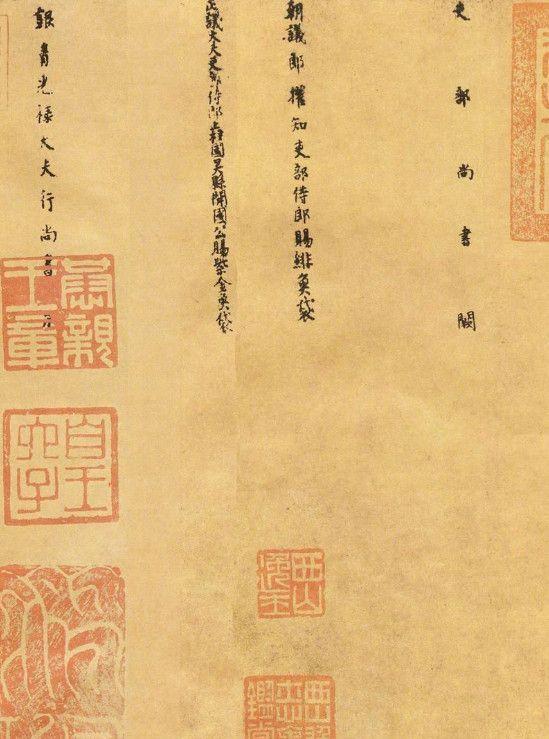 吏部尚書闕
朝議郎權知吏部侍郎賜緋魚袋
正議大夫吏部侍郎上柱國吳縣開國公賜紫金魚袋
銀青光祿大夫行尚書
恭親王章
皇六子
西山逸士